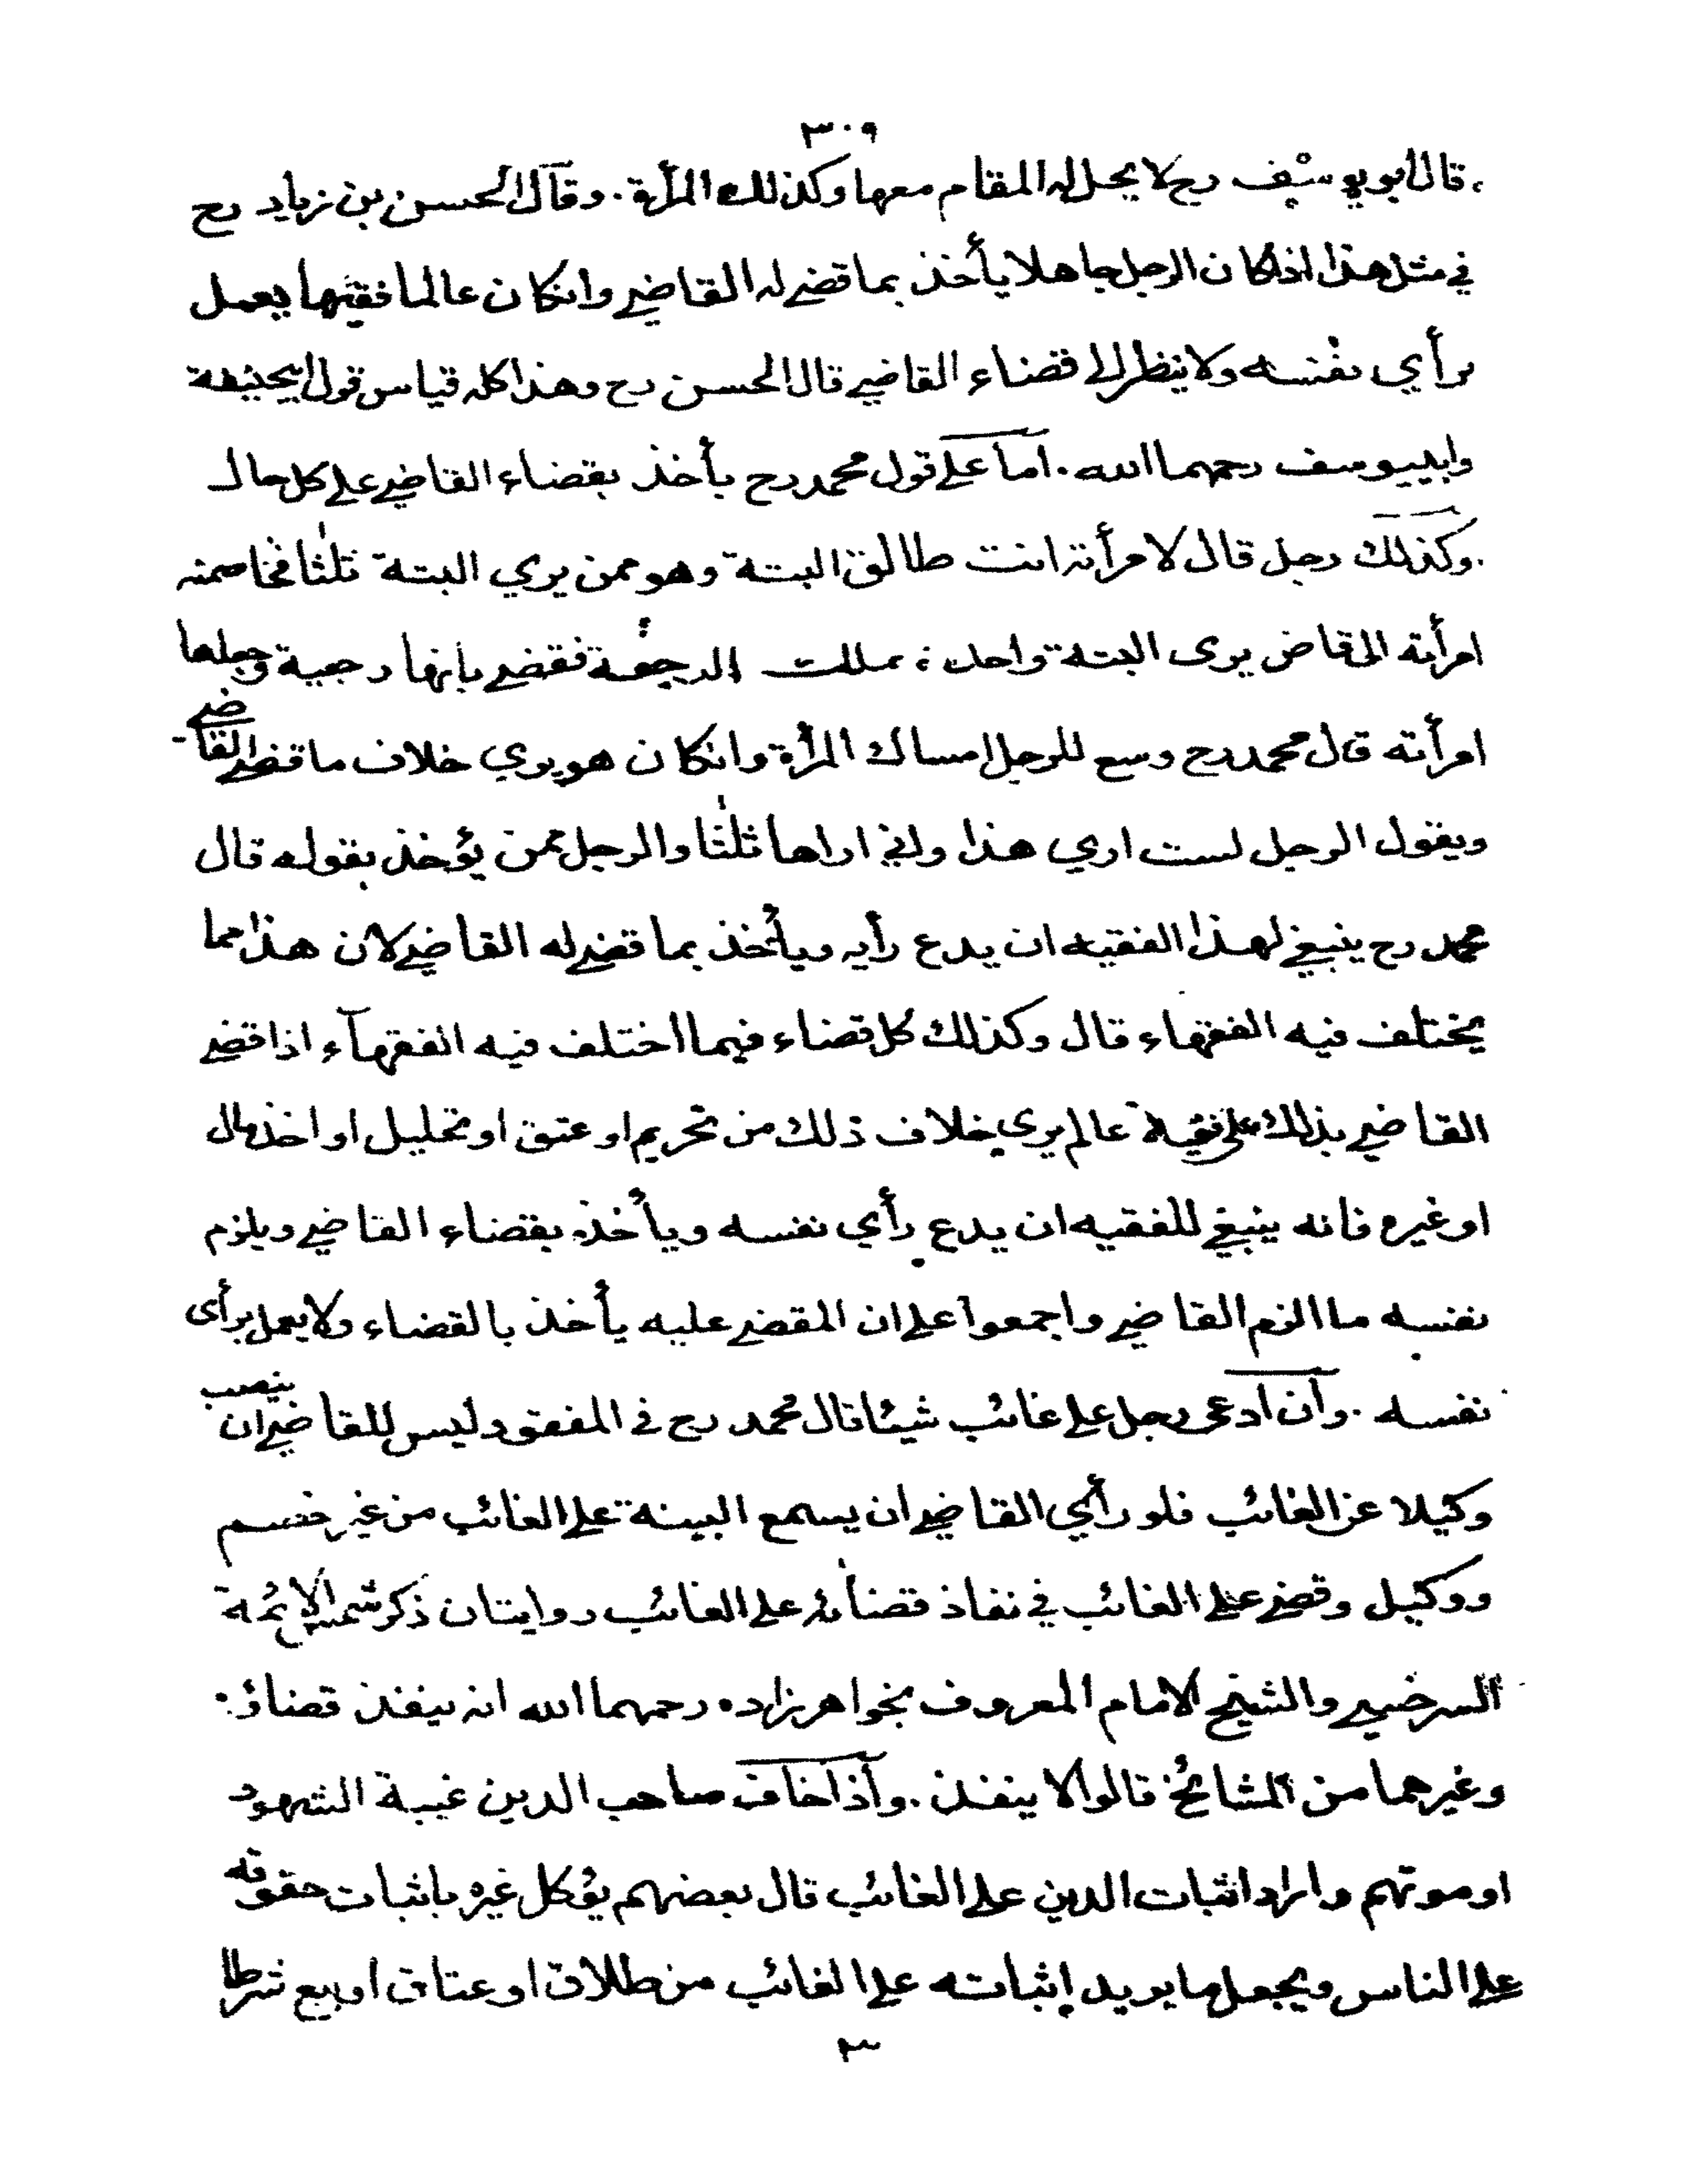 ٣٠٩
قال ابو يوسف رح لا يحل له المقام معها وكذلك المرأة ٠ وقال الحسن بن زياد رح
في مثل هذا اذا كان الرجل جاهلا يأخذ بما قضى له القاضي وانكان عالما فقيها يعمل
برأي نفسه ولا ينظر الى قضاء القاضي قال الحسن رح وهذا كله قياس قول ابيحنيفة
وابييوسف رحمهما الله ٠ اما على قول محمد رح يأخذ بقضاء القاضي على كل حال
٠ وكذلك رجل قال لامرأته انت طالق البتة وهو ممن يري البتة ثلثا فخاصمته
امرأته الى قاض يرى البتة واحدة يملك الرجعة فقضى بانها رجعية وجعلها
امرأته قال محمد رح وسع للرجل امساك المرأة وانكان هو يري خلاف ما قضى القاضي
ويقول الرجل لست اري هذا واني اراها ثلثا والرجل ممن يؤخذ بقوله قال
محمد رح ينبغي لهذا الفقيه ان يدع رأيه ويأخذ بما قضى له القاضي لان هذا مما
يختلف فيه الفقهاء قال وكذلك كل قضاء فيما اختلف فيه الفقهآء اذا قضى
القاضي بذلك على فقيه عالم يري خلاف ذلك من تحريم او عتق او تحليل او اخذ مال
او غيره فانه ينبغي للفقيه ان يدع رأي نفسه ويأخذ بقضاء القاضي ويلزم
نفسه ما الزم القاضي واجمعوا على ان المقضى عليه يأخذ بالقضاء ولا يعمل برأى
نفسه ٠ وان ادعى رجل على غائب شيئا قال محمد رح في المفقود ليس للقاضي ان ينصب
وكيلا عن الغائب فلو رأي القاضي ان يسمع البينة على الغائب من غير خصم
ووكيل وقضى على الغائب في نفاذ قضائه على الغائب روايتان ذكر شمس الائمة
السرخسي والشيخ الامام المعروف بخواهر زاده رحمهما الله انه ينفذ قضاؤه
وغيرهما من المشائخ قالوا لا ينفذ ٠ واذا خاف صاحب الدين غيبة الشهود
او موتهم واراد اثبات الدين على الغائب قال بعضهم يؤكل غيره باثبات حقوقه
على الناس ويجعل ما يريد إثباته على الغائب من طلاق او عتاق او بيع شرطا